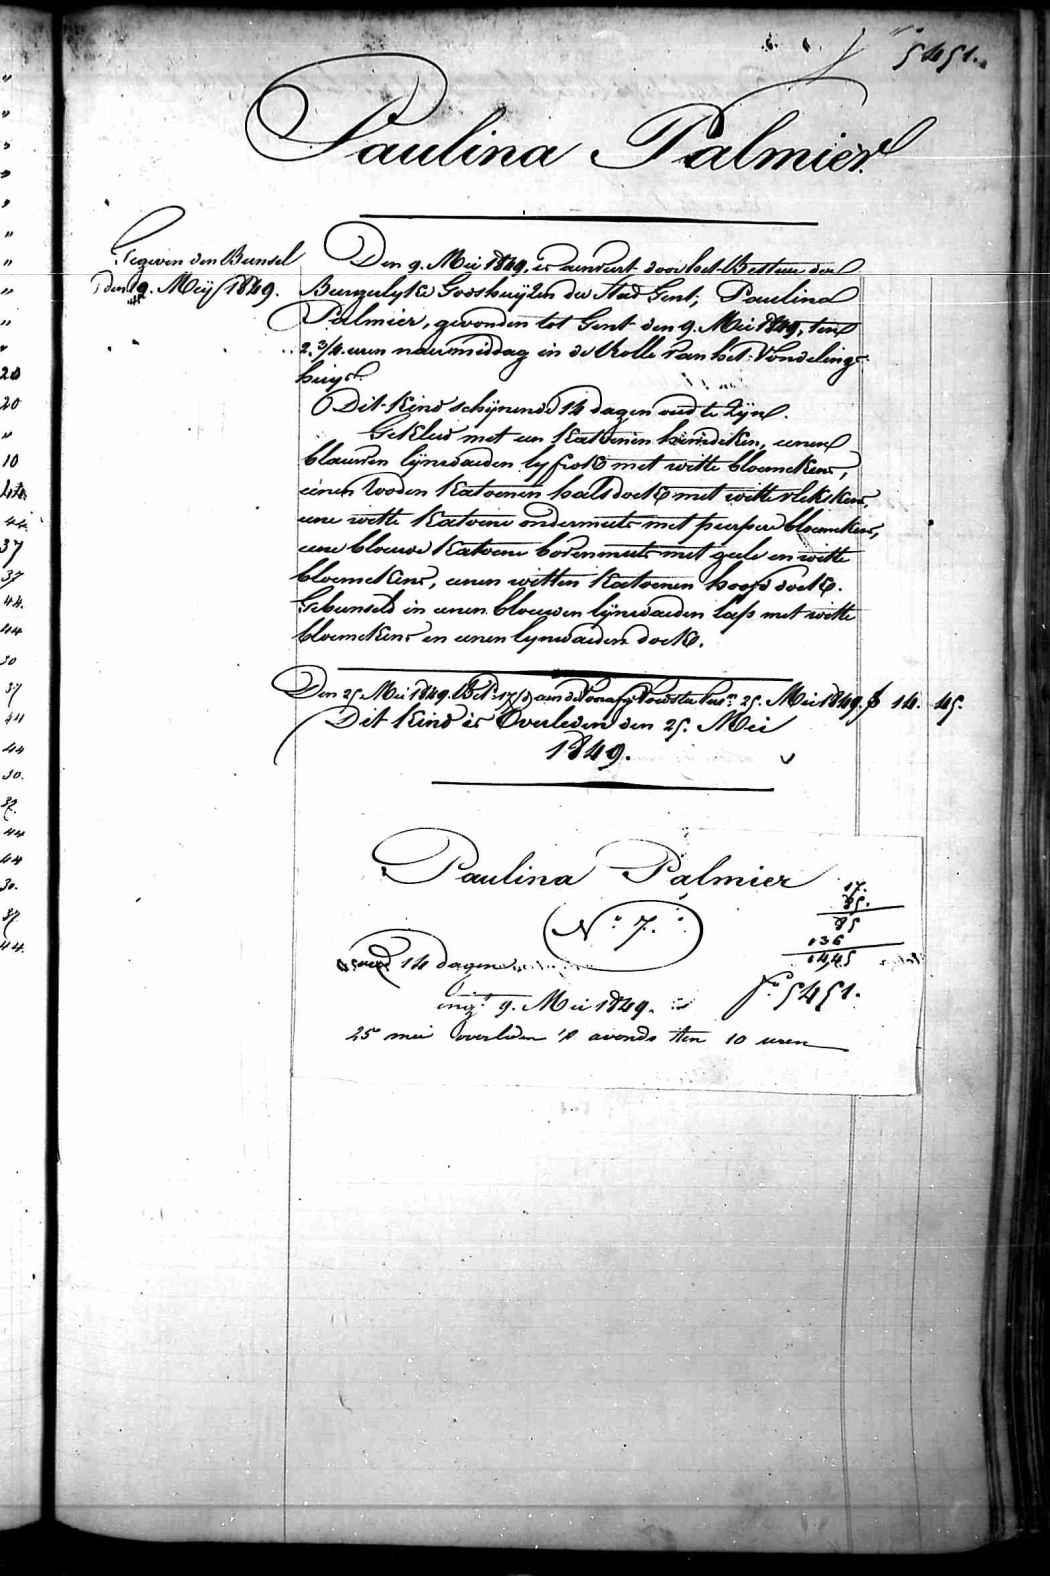 N° 5451.
Paulina Palmier.
Gegeven den Bunsel
den 9. Meij 1849.
Den 9. Mei 1849, is aenveirt door het Bestuer der
Burgerlyke Godshuijzen der Stad Gent, Paulina
Palmier, gevonden tot Gent den 9. Mei 1849, ten
2 3/4 uren naermiddag in de Rolle van het Vondeling-
huijs.
Dit kind schijnende 14 dagen oud te zijn.
Gekleed met een katoenen hemdeken, eenen
blauwen lijnwaeden lyfrok met witte bloemekens,
eenen rooden katoenen halsdoek met witte vlekskens,
eene witte katoene ondermuts met peerse bloemekens,
eene blauwe katoene bovenmuts met geele en witte
bloemekens, eenen witten katoenen hoofddoek.
Gebunseld in eenen blauwen lijnwaeden lap met witte
bloemekens en eenen lynwaeden doek.
Den 25 Mei 1849. Bet. 17/d aen de Voedster tot 25. Mei 1849. f 14. 45.
Dit kind is Overleden den 25. Mei
1849.
Paulina Palmier
N° 7.
17.
85.
85
136
14,45
oud 14 dagen
ing. 9. Mei 1849.
f° 5451.
25 mei overleden 's avonds ten 10 uren
20
20
10
44
37
37
44.
44
30
37
44
44
30.
37.
44
44
30.
37
44.